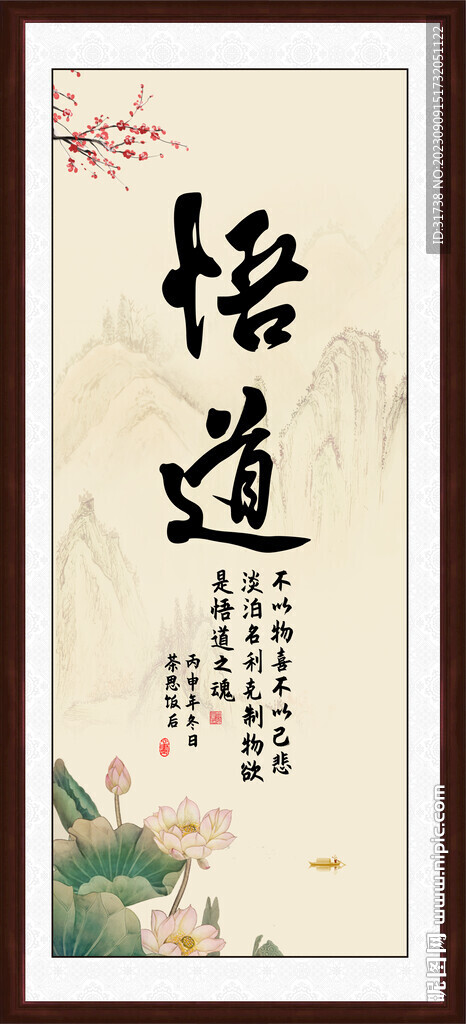 悟道
不以物喜不以己悲
淡泊名利克制物欲
是悟道之魂
丙申年冬日
茶思饭后
ID:31738 NO:20230909151732051122
昵图网 www.nipic.com